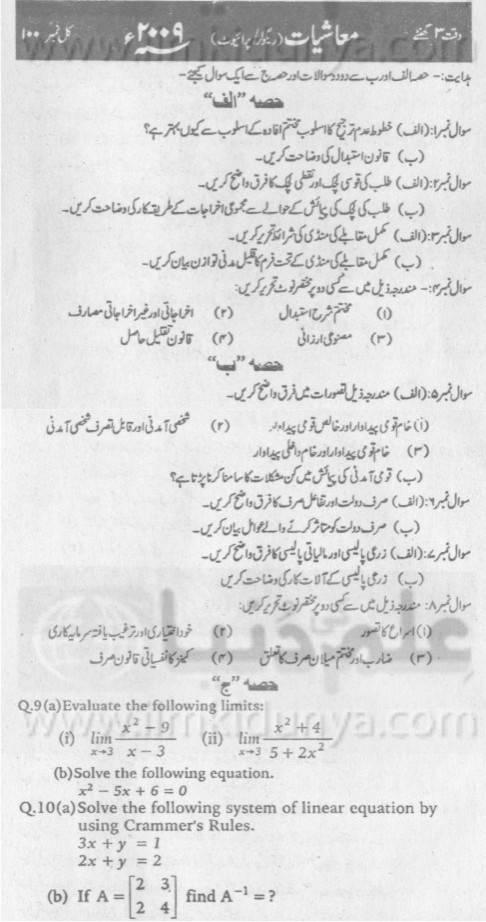 وقت ۳ گھنٹے معاشیات (ریگولر/پرائیویٹ) سنہ ۲۰۰۹ء کل نمبر ۱۰۰
ہدایت:- حصہ الف اور ب سے دو دو سوالات اور حصہ ج سے ایک سوال کیجئے-
حصہ "الف"
سوال نمبر۱: (الف) خطوط عدم ترجیح کا اسلوب مختتم افادہ کے اسلوب سے کیوں بہتر ہے؟
(ب) قانون استبدال کی وضاحت کریں۔
سوال نمبر۲: (الف) طلب کی قوسی لچک اور نقطی لچک کا فرق واضح کریں۔
(ب) طلب کی لچک کی پیمائش کے حوالے سے مجموعی اخراجات کے طریقہ کار کی وضاحت کریں۔
سوال نمبر۳: (الف) مکمل مقابلے کی منڈی کی شرائط تحریر کریں۔
(ب) مکمل مقابلے کی منڈی کے تحت فرم کا قلیل مدتی توازن بیان کریں۔
سوال نمبر۴:- مندرجہ ذیل میں سے کسی دو پر مختصر نوٹ تحریر کریں:
(۱) مختتم شرح استبدال (۲) اخراجاتی اور غیر اخراجاتی مصارف
(۳) مصنوعی ارزانی (۴) قانون تقلیل حاصل
حصہ "ب"
سوال نمبر۵: (الف) مندرجہ ذیل تصورات میں فرق واضح کریں۔
(۱) خام قومی پیداوار اور خالص قومی پیداوار (۲) شخصی آمدنی اور قابل تصرف شخصی آمدنی
(۳) خام قومی پیداوار اور خام داخلی پیداوار
(ب) قومی آمدنی کی پیمائش میں کن مشکلات کا سامنا کرنا پڑتا ہے؟
سوال نمبر۶: (الف) صرف دولت اور تفاعل صرف کا فرق واضح کریں۔
(ب) صرف دولت کو متاثر کرنے والے عوامل بیان کریں۔
سوال نمبر۷: (الف) زرعی پالیسی اور مالیاتی پالیسی کا فرق واضح کریں۔
(ب) زرعی پالیسی کے آلات کار کی وضاحت کریں
سوال نمبر۸: مندرجہ ذیل میں سے کسی دو پر مختصر نوٹ تحریر کریں:
(۱) اسراع کا تصور (۲) خود اختیاری اور ترغیب یافتہ سرمایہ کاری
(۳) ضارب اور مختتم میلان صرف کا تعلق (۴) کینز کا نفسیاتی قانون صرف
حصہ "ج"
Q.9(a)Evaluate the following limits:
(i) lim x→3 (x² - 9)/(x - 3) (ii) lim x→3 (x² + 4)/(5 + 2x²)
(b)Solve the following equation.
x² - 5x + 6 = 0
Q.10(a)Solve the following system of linear equation by
using Crammer's Rules.
3x + y = 1
2x + y = 2
(b) If A = [2 3, 2 4] find A⁻¹ = ?
www.ilmkidunya.com
علم کی دنیا